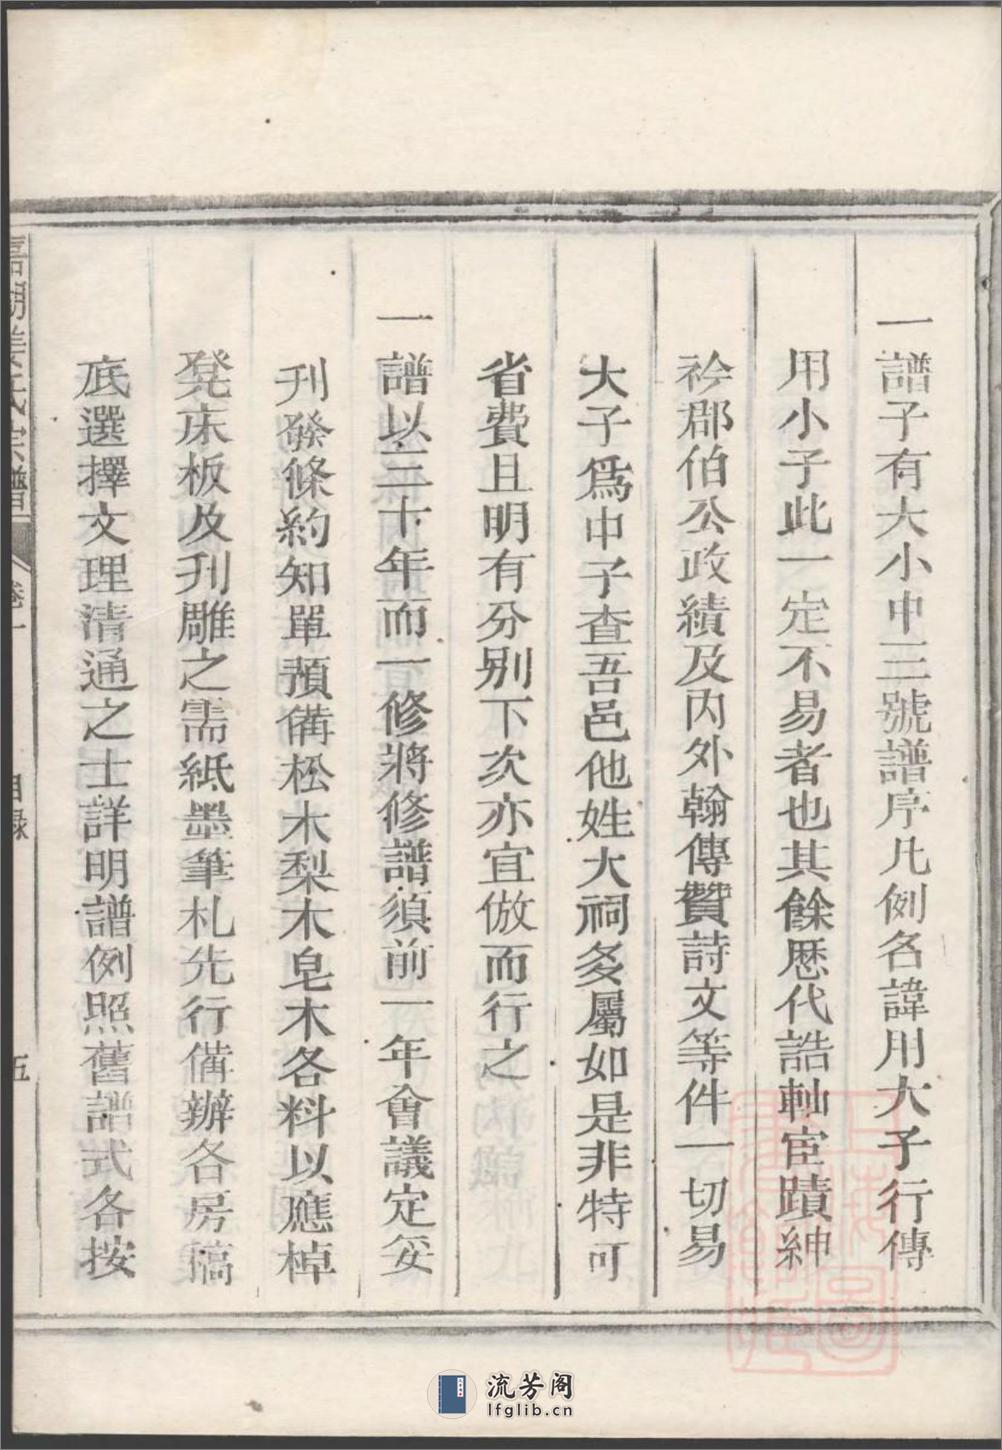 一譜子有大小中三號譜序凡例名諱用大子行傳
用小子此一定不易者也其餘歷代誥軸宦蹟紳
衿郡伯公政績及内外翰傳贊詩文等件一切易
大子爲中子查吾邑他姓大祠多屬如是非特可
省費且明有分别下次亦宜倣而行之
一譜以三十年而一修將修譜須前一年會議定妥
刊發條約知單預備松木梨木皂木各料以應棹
凳床板及刊雕之需紙墨筆札先行備辦各房稿
底選擇文理清通之士詳明譜例照舊譜式各按
姜氏宗譜
卷一
目録
五
流芳阁
lfglib.cn